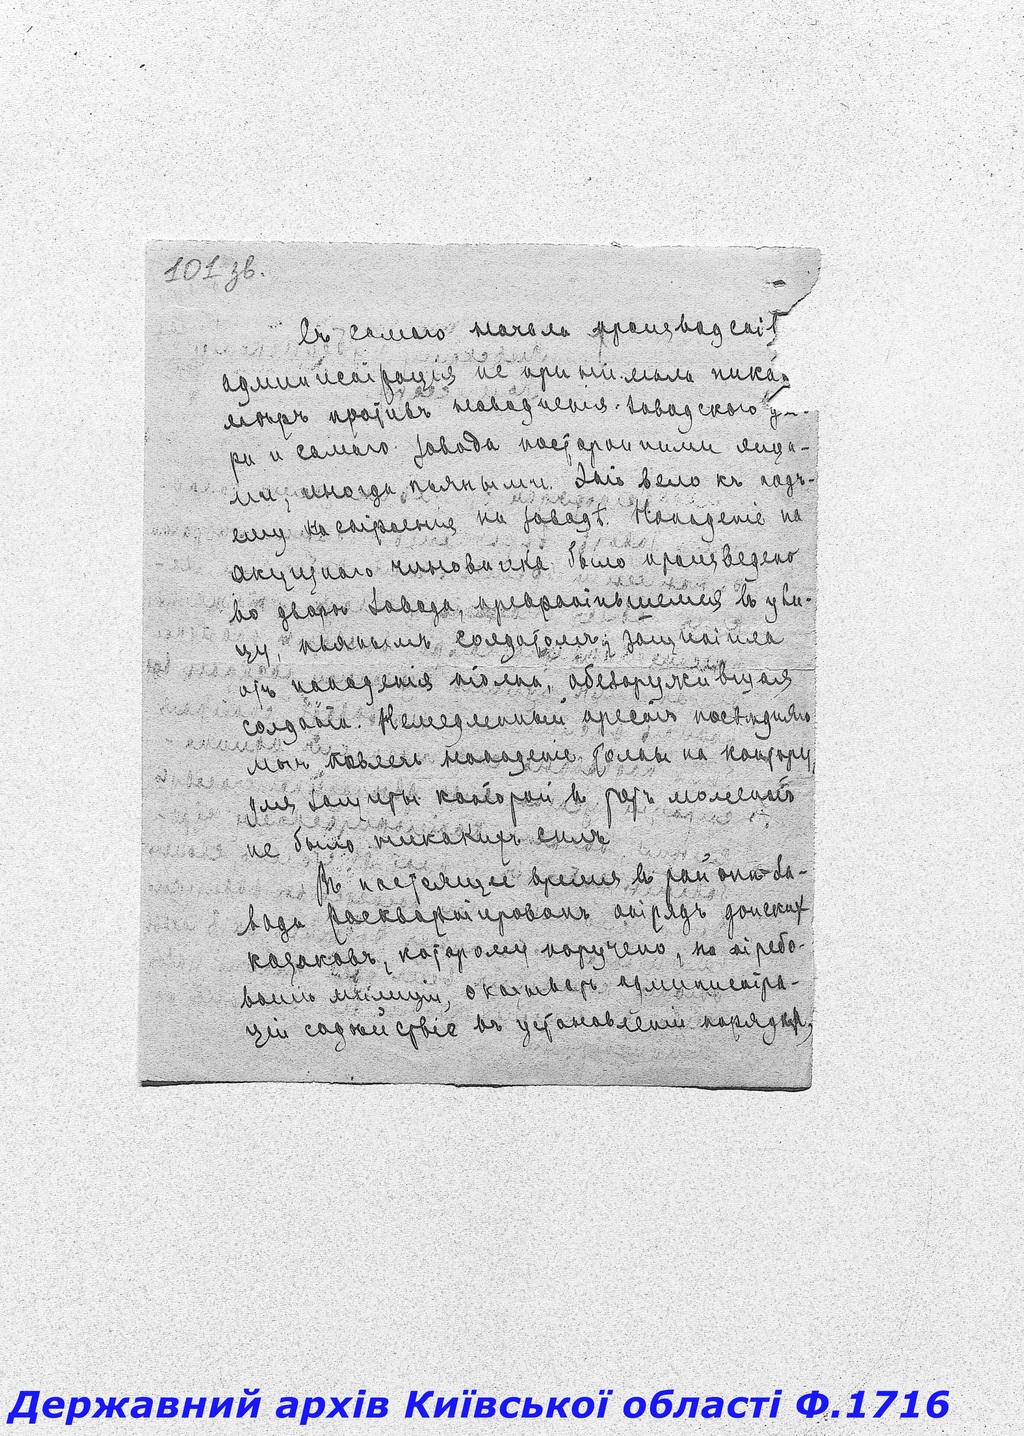 101 зв.
Съ самаго начала производст
администрація не принимала ника
мѣръ противъ наводненія заводскаго дво-
ра и самаго завода посторонними лица-
ми, иногда пьяными. Это вело къ подъ-
ему настроенія на заводѣ. Нападеніе на
акцизнаго чиновника было произведено
во дворѣ завода, превратившемся въ ули-
цу, пьянымъ солдатомъ; защитила
отъ нападенія толпа, обезоружившая
солдата. Немедленный арестъ послѣдняго
нападеніе толпы на контору,
для защиты которой въ тотъ моментъ
не было никакихъ силъ
Въ настоящее время въ районѣ за-
вода расквартированъ отрядъ донскихъ
казаковъ, которому поручено, по требо-
ванію милиціи, оказывать администра-
ціи содѣйствіе въ установленіи порядка,
Державний архів Київської області Ф.1716